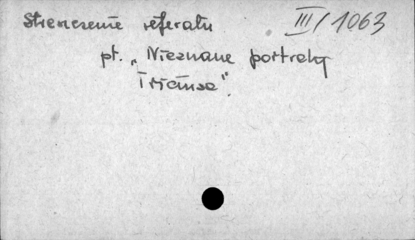 Streszczenie referatu III/1063
pt. „Nieznane portrety